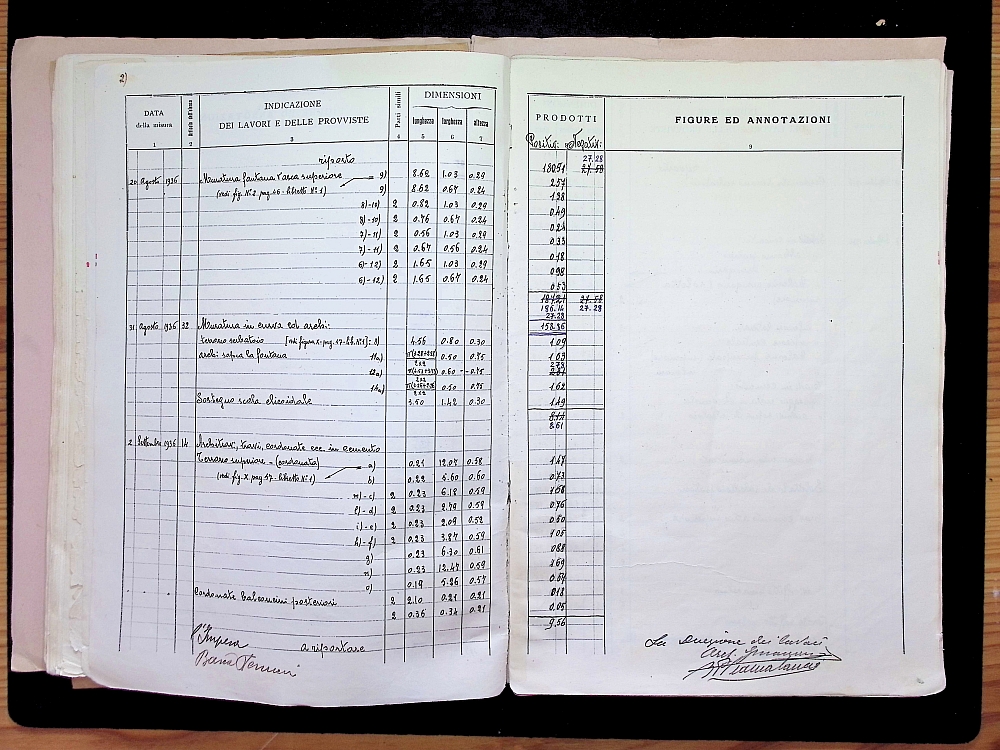 2)
DATA della misura INDICAZIONE DEI LAVORI E DELLE PROVVISTE Parti simili DIMENSIONI lunghezza larghezza altezza PRODOTTI FIGURE ED ANNOTAZIONI
1 2 3 4 5 6 7 9
Positivi Negativi
riporto 27.28
180.51 27.58
20 Agosto 1936 Muratura fontana vasca superiore 9) 8.62 1.03 0.29 2.57
(vedi fig. N. 2. pag. 46 - libretto N° 1) 9) 8.62 0.67 0.24 1.38
8)-10) 2 0.82 1.03 0.29 0.49
8)-10) 2 0.76 0.67 0.24 0.24
7)-11) 2 0.56 1.03 0.29 0.33
7)-11) 2 0.67 0.56 0.24 0.18
6)-12) 2 1.65 1.03 0.29 0.98
6)-12) 2 1.65 0.67 0.24 0.53
27.58
186.14 27.28
27.28
31 Agosto 1936 32 Muratura in curva ed archi: 158.86
terrazzo serbatoio [vedi figura X. pag. 47 - lib. N° 1]: 8) 4.56 0.80 0.30 1.09
archi sopra la fontana 11a) 0.50 0.75 1.03
12a) 0.60 0.75
14a) 0.50 0.75 1.62
Sostegno scala elicoidale 3.50 1.42 0.30 1.49
8.61
2 Settembre 1936 14 Architravi, travi, cordonate ecc. in cemento
Terrazzo superiore - (cordonata) a) 0.21 12.07 0.58 1.47
(vedi fig. X. pag. 47 - libretto N° 1) b) 0.22 5.60 0.60 0.73
m)-c) 2 0.23 6.18 0.59 1.68
l)-d) 2 0.23 2.79 0.59 0.76
i)-e) 2 0.23 2.09 0.52 0.50
h)-f) 2 0.23 3.87 0.59 1.05
g) 0.23 6.30 0.61 0.88
n) 0.23 12.47 0.59 1.69
o) 0.19 5.26 0.57 0.57
" " " Cordonate balconcini posteriori 2 2.10 0.21 0.21 0.18
2 0.36 0.34 0.21 0.05
9.56
l'Impresa a riportare
La Direzione dei lavori